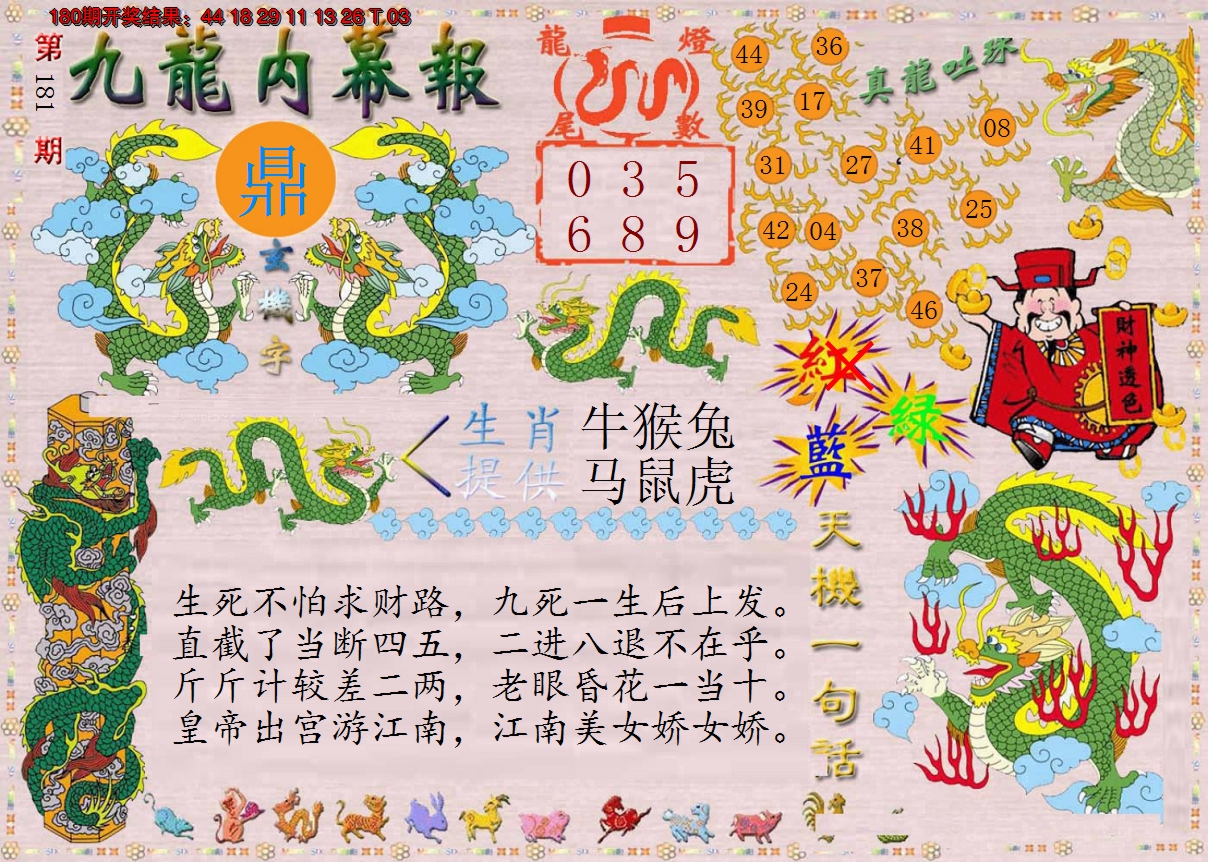 180期开奖结果：44 18 29 11 13 26 T 03
第181期
九龍内幕報
鼎
玄機字
龍燈
尾數
0 3 5
6 8 9
真龍吐珠
44 36
39 17
31 27 41 08
42 04 38 25
24 37 46
紅
綠
藍
財神透色
生肖提供
牛猴兔
马鼠虎
天機一句话
生死不怕求财路，九死一生后上发。
直截了当断四五，二进八退不在乎。
斤斤计较差二两，老眼昏花一当十。
皇帝出宫游江南，江南美女娇女娇。